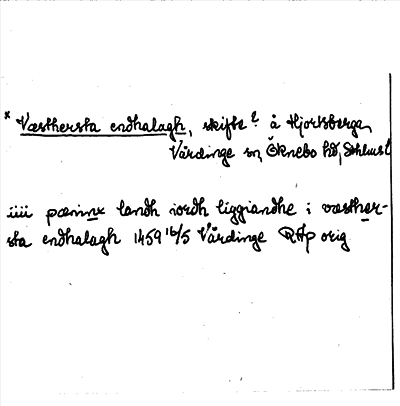 * Væsthersta endhalagh, skifte? å Hjortsberga,
Vårdinge sn, Öknebo hd, Sthlms l
iiii pæninx landh iordh liggiandhe i væsther-
sta endhalagh 1459 16/5 Vårdinge RAp orig